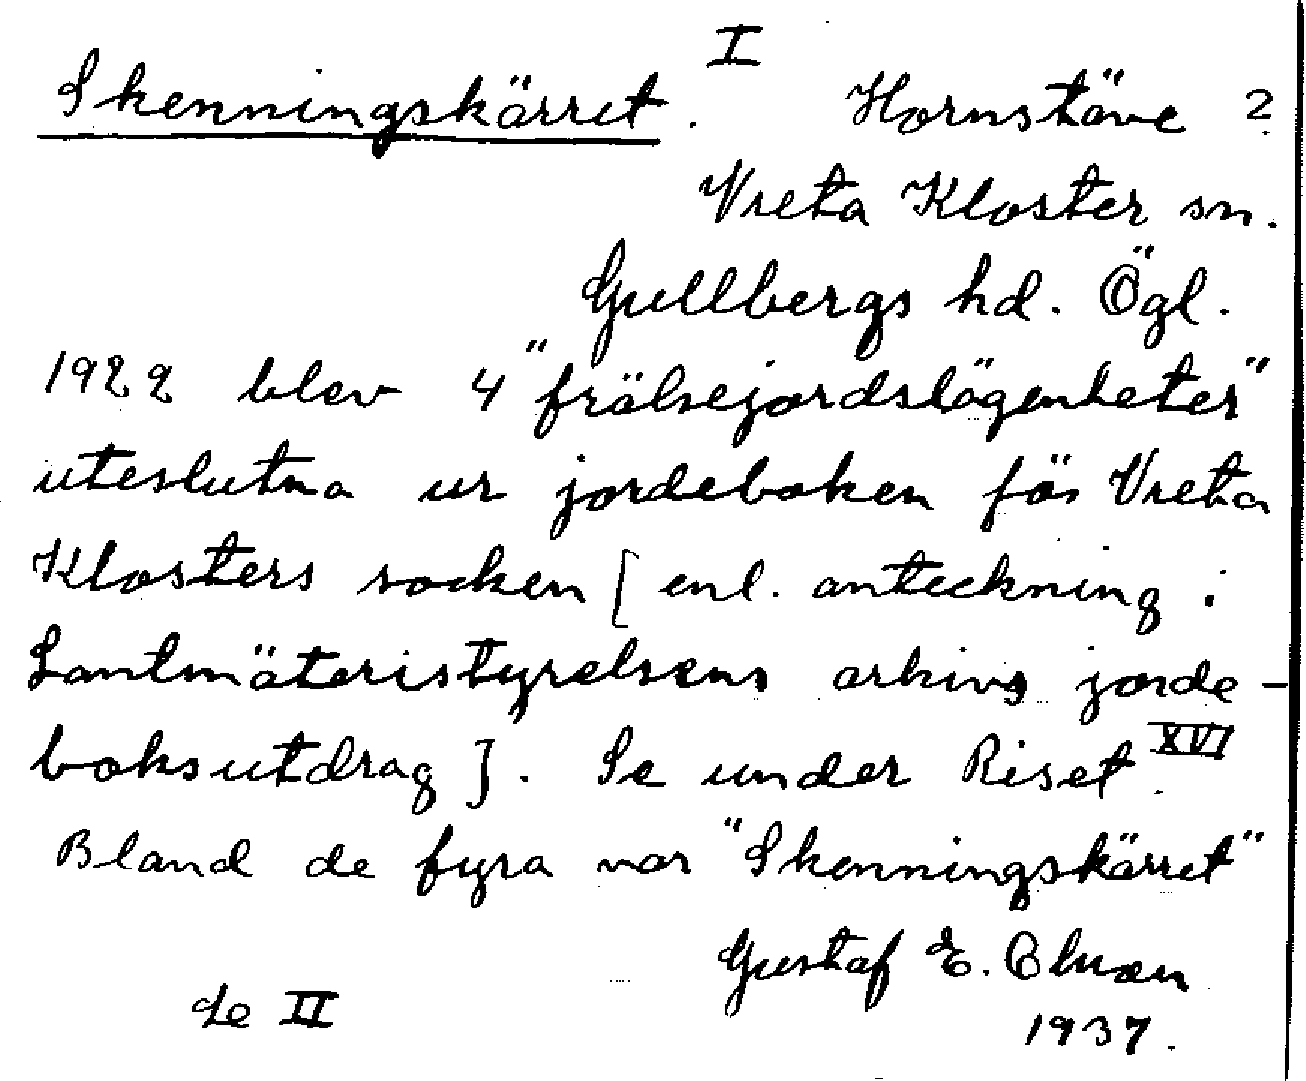 I
Skenningskärret. Hornstäve ?
Vreta Kloster sn.
Gullbergs hd. Ögl.
1922 blev 4 "frälsejordslägenheter"
uteslutna ur jordeboken för Vreta
Klosters socken [enl. anteckning i
Lantmäteristyrelsens arkivs jorde-
boksutdrag]. Se under Riset XVI.
Bland de fyra var "Skenningskärret"
Gustaf E.
de II
1937.